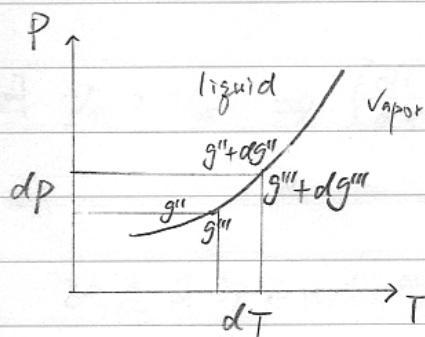 P
liquid
Vapor
g''+dg''
dp
g'''+dg'''
g''
g'''
dT
T